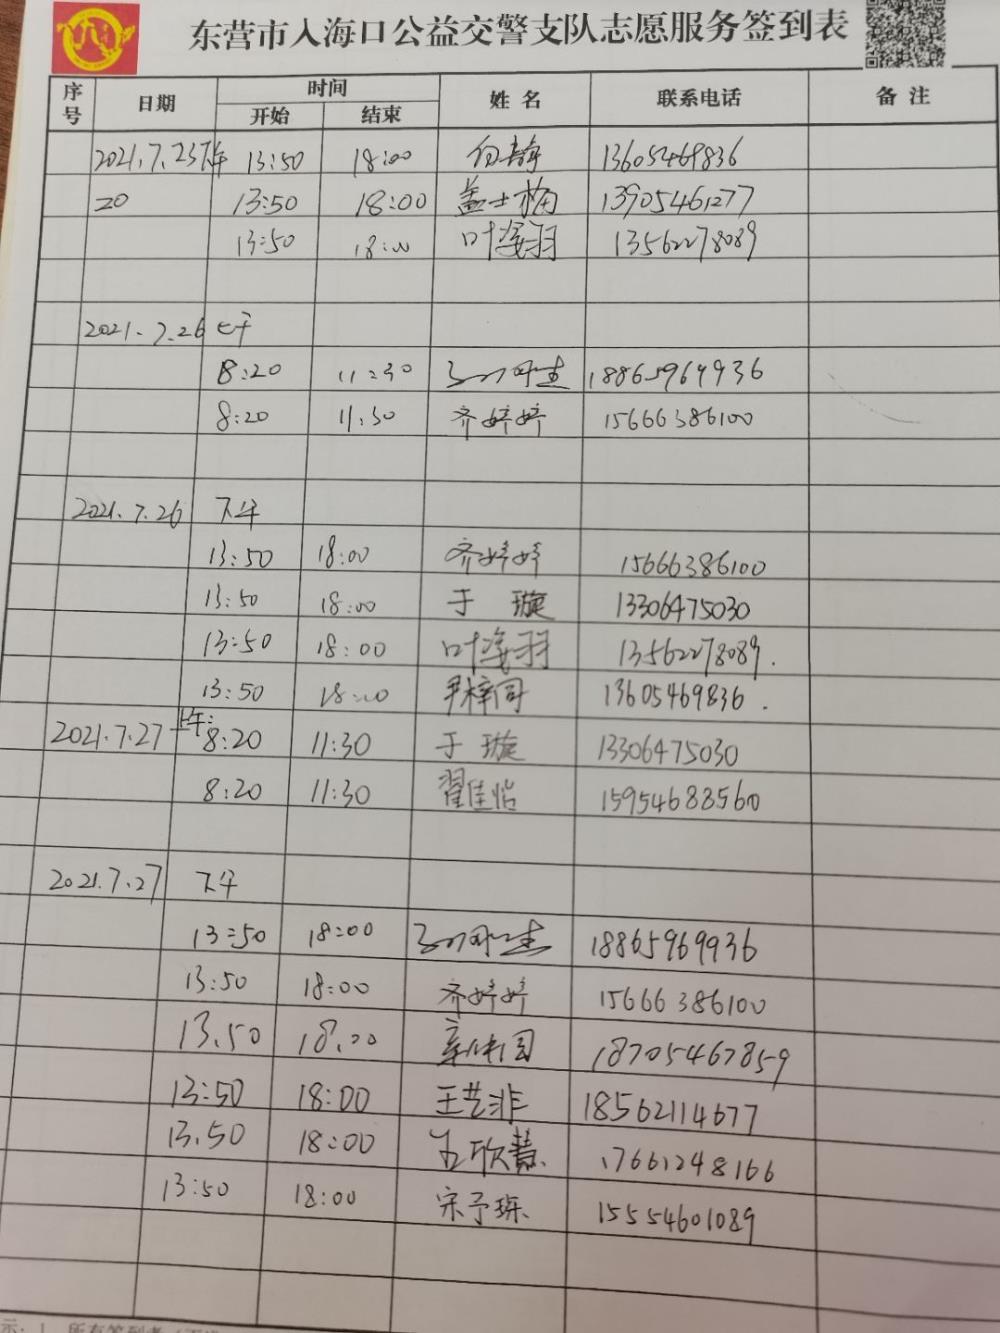 东营市入海口公益交警支队志愿服务签到表
序号 日期 时间 姓名 联系电话 备注
开始 结束
2021.7.23下午 13:50 18:00 13605469836
20 13:50 18:00 盖士梅 13905461277
13:50 18:00 叶 羽 13562278089
2021.7.26 上午
8:20 11:30 18865969936
8:20 11:30 齐婷婷 15666386100
2021.7.26 下午
13:50 18:00 齐婷婷 15666386100
13:50 18:00 于璇 13306475030
13:50 18:00 叶 羽 13562278089.
13:50 18:00 尹梓同 13605469836.
2021.7.27 上午: 8:20 11:30 于璇 13306475030
8:20 11:30 翟佳怡 15954683560
2021.7.27 下午
13:50 18:00 18865969936
13:50 18:00 齐婷婷 15666386100
13.50 18.00 18705467859
13:50 18:00 王艺非 18562114677
13.50 18:00 欣慧 17661248166
13:50 18:00 宋予琛 15554601089